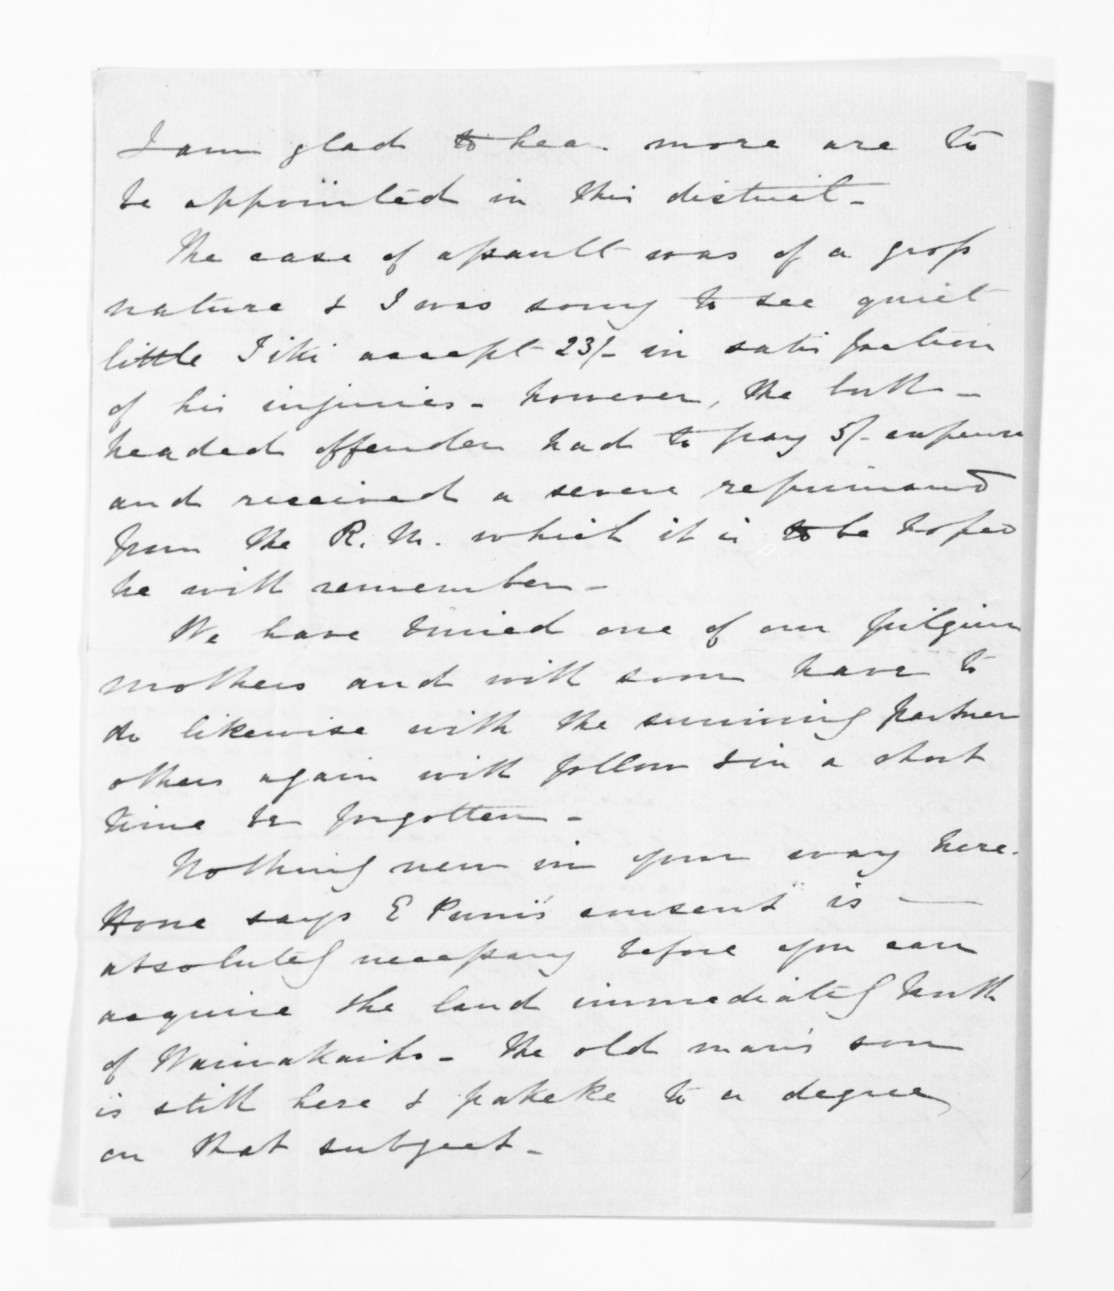 I am glad to hear more are to
be appointed in this district -
The case of assault was of a gross
nature & I was sorry to see quiet
little Tiki accept 23/- in satisfaction
of his injuries - however, the bull -
headed offender had to pay 5/- expenses
and received a severe reprimand
from the R. M. which it is to be hoped
he will remember -
We have buried one of our pilgrim
mothers and will soon have to
do likewise with the surviving partner
others again will follow & in a short
time be forgotten -
Nothing new in your way here.
Hone says E Puni's consent is
absolutely necessary before you can
acquire the land immediately South
of - The old man's son
is still here & pakeke to a degree
on that subject -